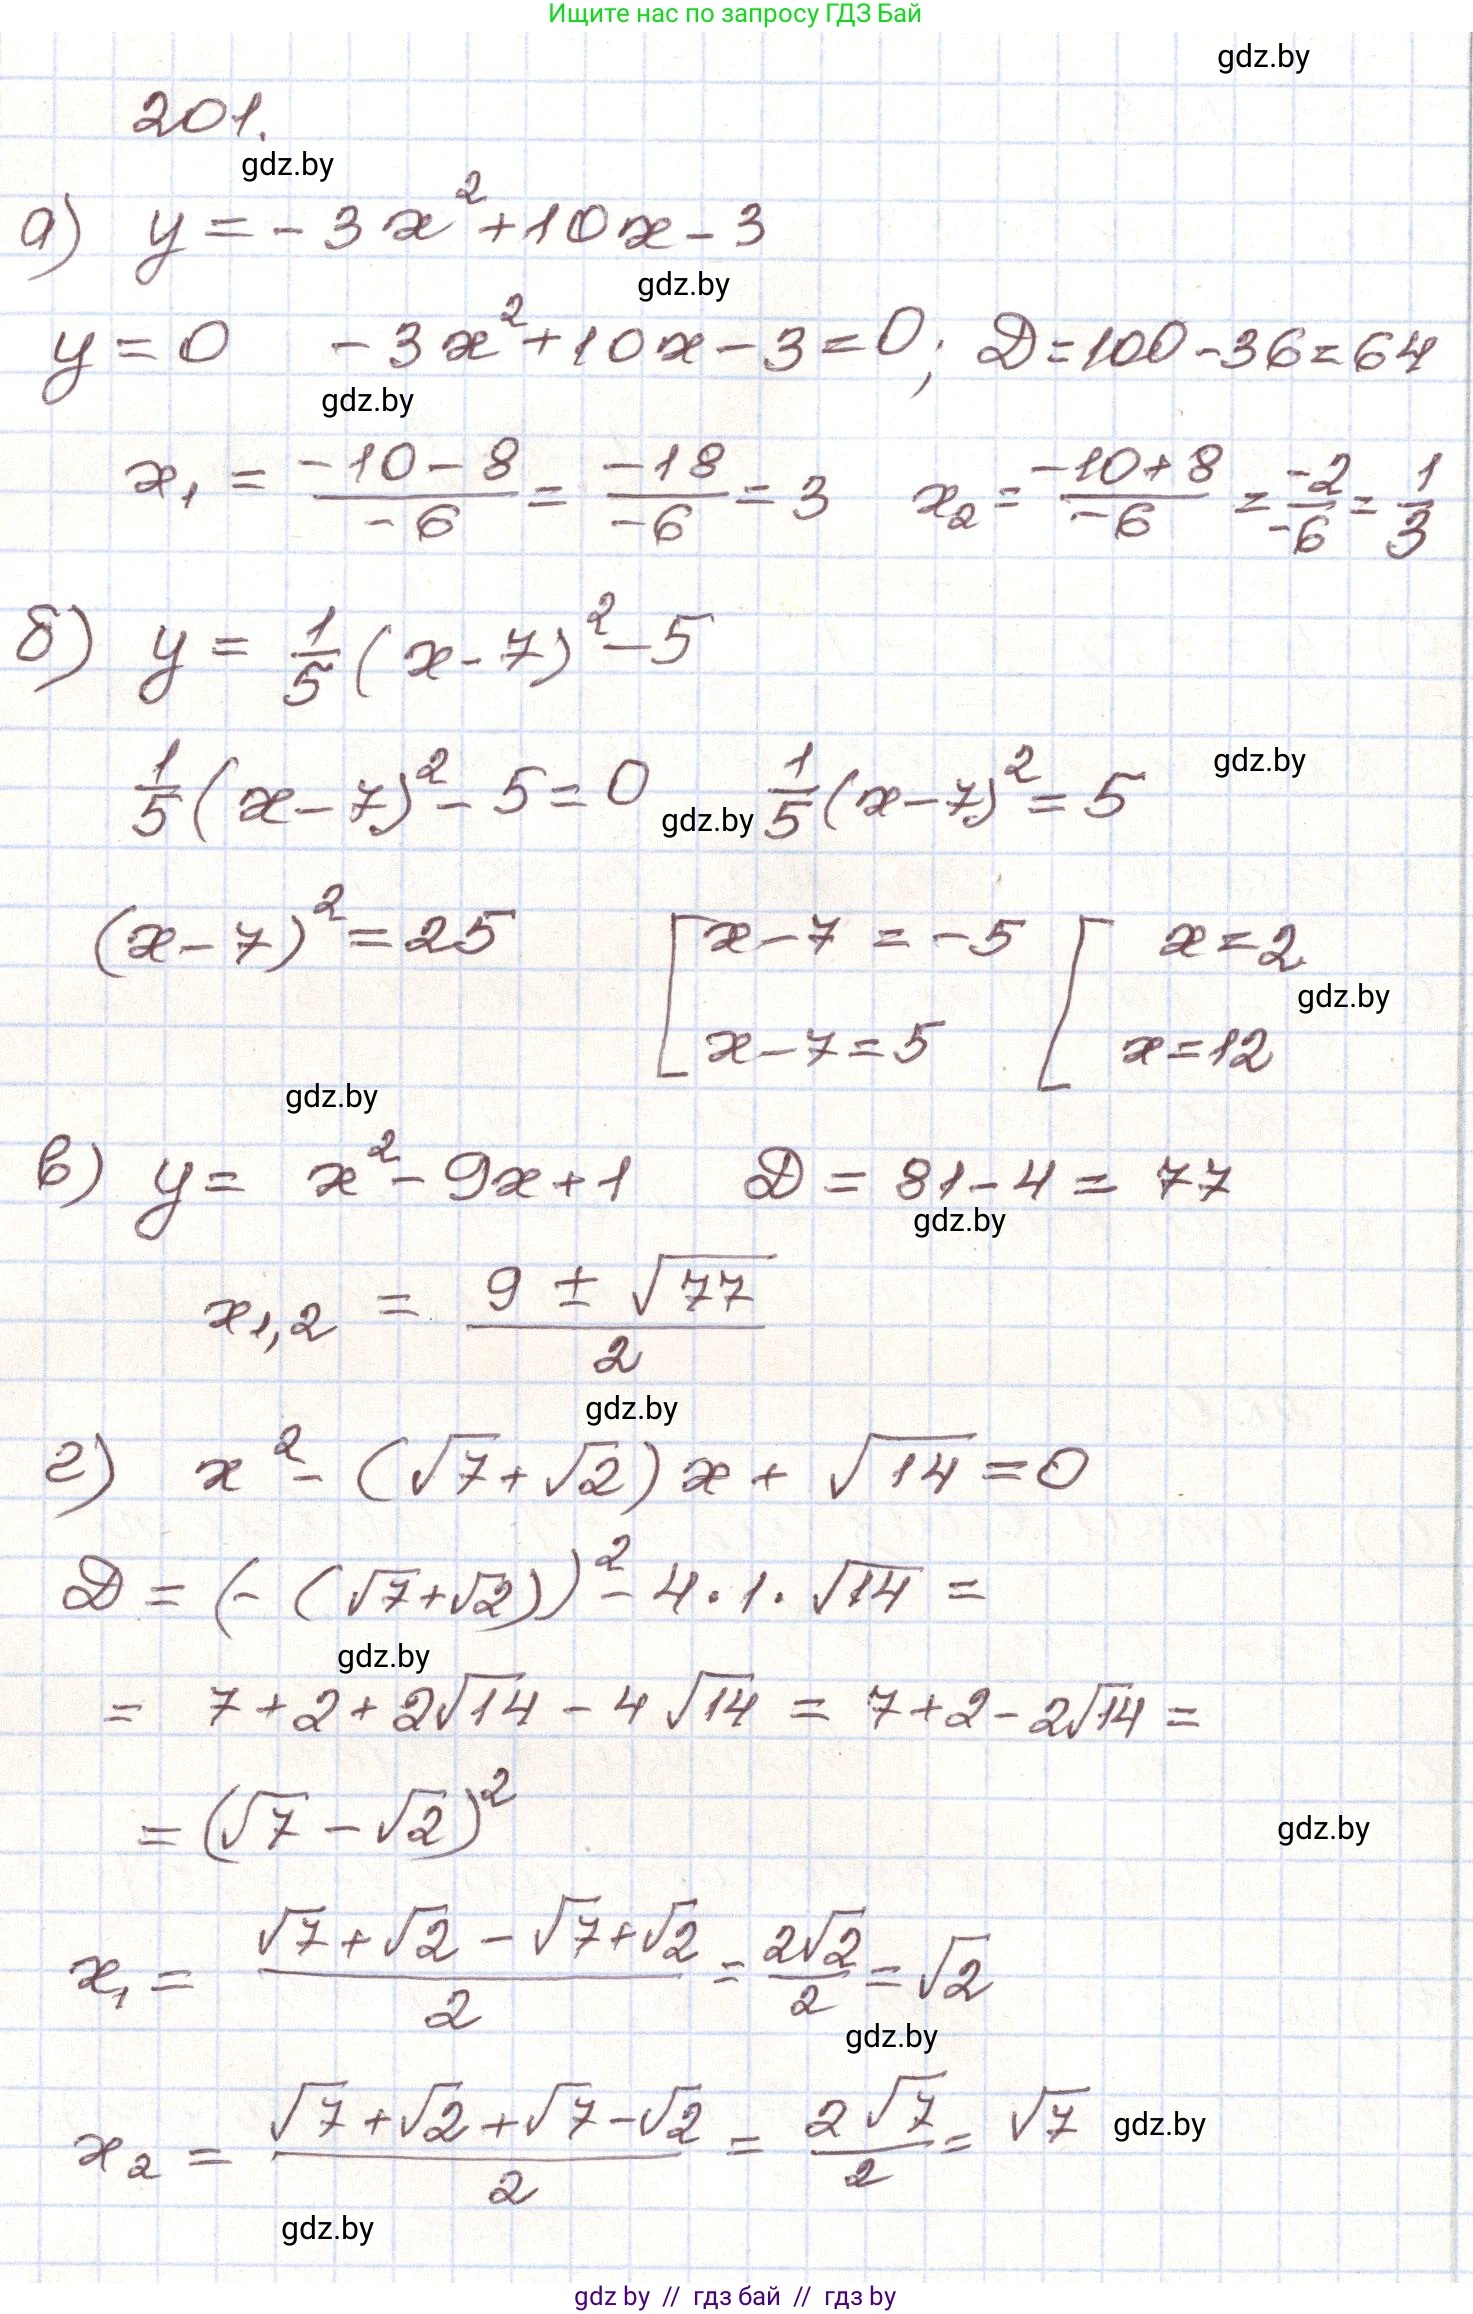 Ищите нас по запросу ГДЗ Бай
gdz.by
201.
gdz.by
а) y = -3x² + 10x - 3
gdz.by
y = 0   -3x² + 10x - 3 = 0; D = 100 - 36 = 64
gdz.by
x₁ = (-10 - 8)/(-6) = (-18)/(-6) = 3   x₂ = (-10 + 8)/(-6) = (-2)/(-6) = 1/3
б) y = 1/5 (x - 7)² - 5
1/5 (x - 7)² - 5 = 0   1/5 (x - 7)² = 5
gdz.by
gdz.by
(x - 7)² = 25   [ x - 7 = -5   [ x = 2
gdz.by
x - 7 = 5   x = 12
gdz.by
в) y = x² - 9x + 1   D = 81 - 4 = 77
gdz.by
x₁,₂ = (9 ± √77)/2
gdz.by
г) x² - (√7 + √2)x + √14 = 0
D = (-(√7 + √2))² - 4 · 1 · √14 =
gdz.by
= 7 + 2 + 2√14 - 4√14 = 7 + 2 - 2√14 =
= (√7 - √2)²
gdz.by
x₁ = (√7 + √2 - √7 + √2)/2 = 2√2/2 = √2
gdz.by
x₂ = (√7 + √2 + √7 - √2)/2 = 2√7/2 = √7
gdz.by
gdz.by
gdz by // гдз бай // гдз by